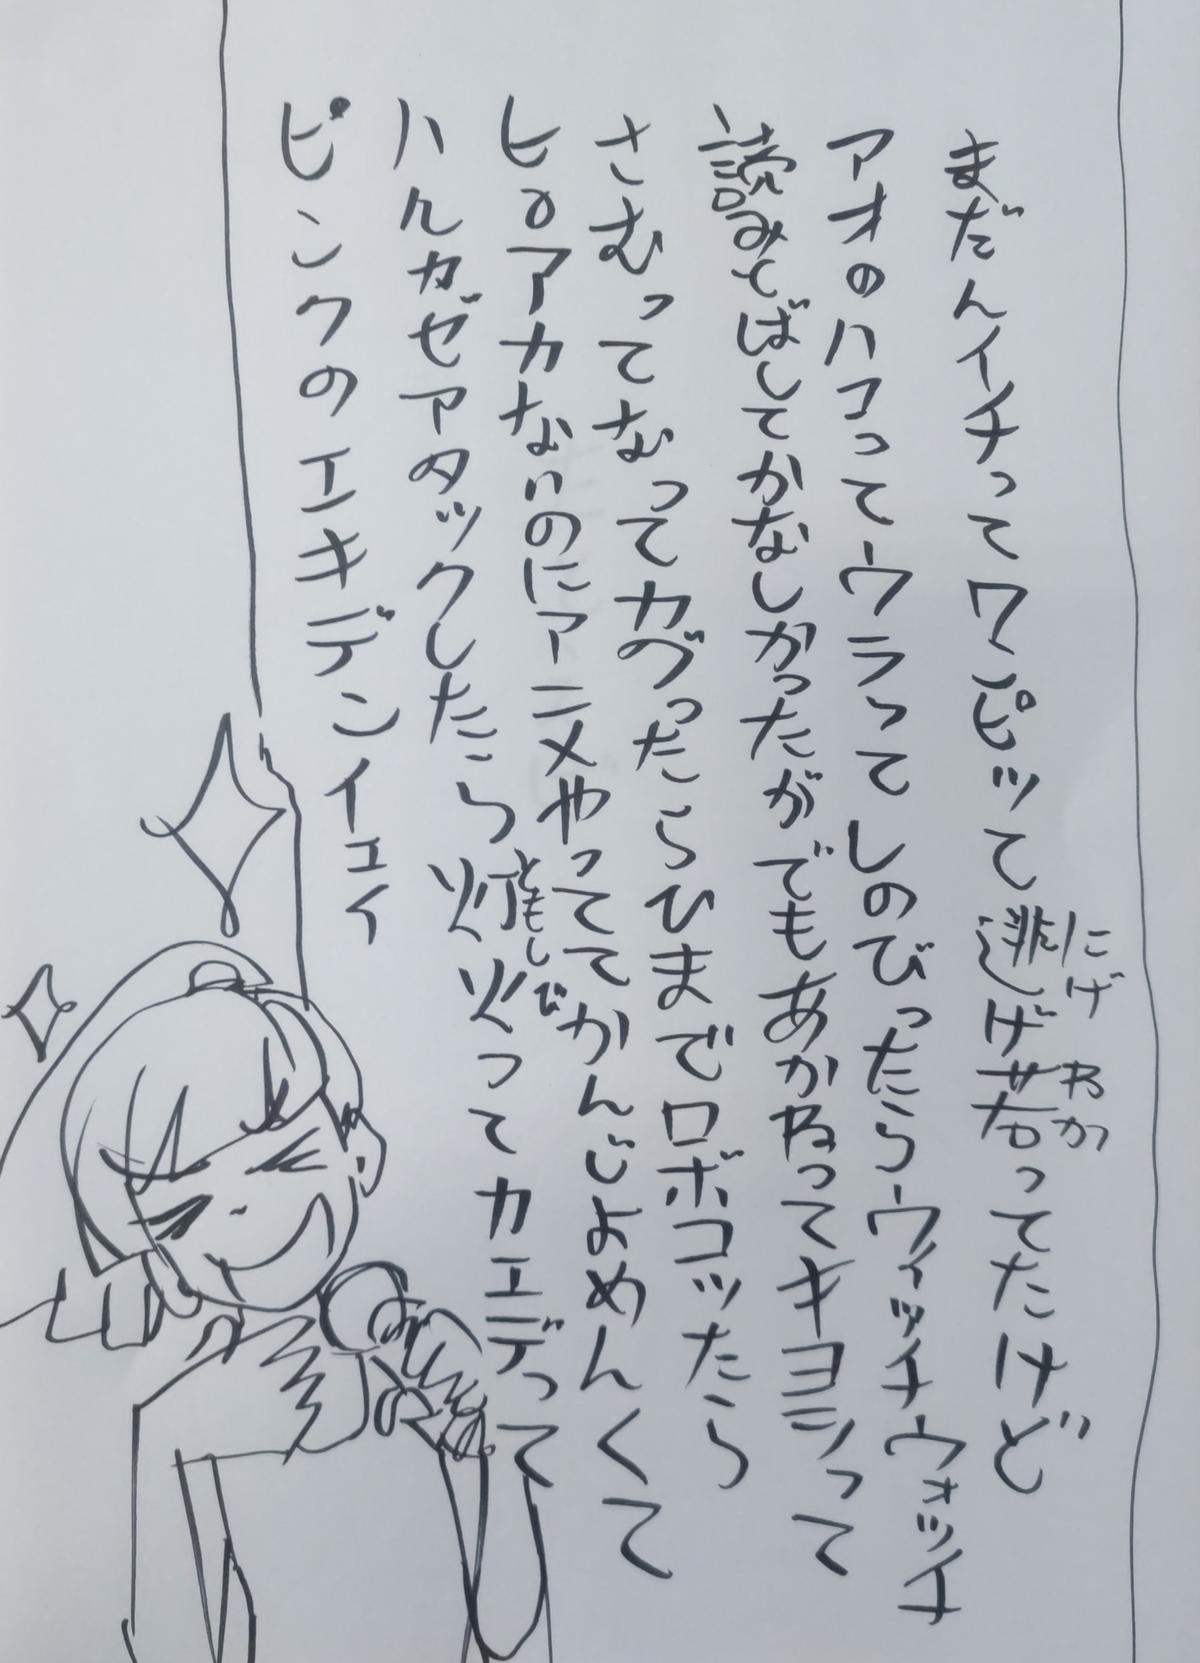 まだんイチってワンピッて逃げ若ってたけど
にげわか
アオのハコってウラってしのびったらウィッチウォッチ
読みとばしてかなしかったがでもあかねってキヨシって
さむってなってカグったらひまでロボコッたら
ヒロアカないのにアニメやっててかんじよめんくて
ハルカゼアタックしたら灯火ってカエデって
ともしび
ピンクのエキデンイェイ